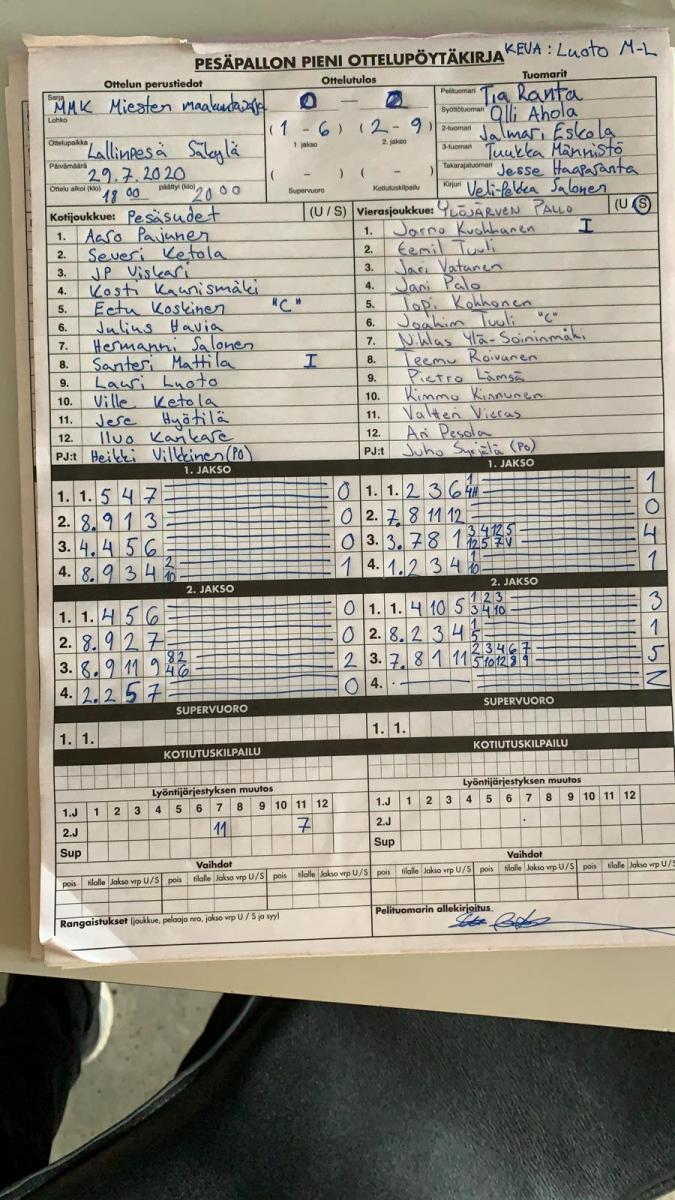 PESÄPALLON PIENI OTTELUPÖYTÄKIRJA KEVA: Luoto M-L
Ottelun perustiedot
Sarja MMK Miesten
Lohko
Ottelupaikka Lallinpesä Säkylä
Päivämäärä 29.7.2020
Ottelu alkoi (klo) 18 00 päättyi (klo) 20 00
Ottelutulos
0 — 2
(1 - 6) (2 - 9)
1. jakso 2. jakso
( - ) ( - )
Supervuoro Kotiutuskilpailu
Tuomarit
Pelituomari Tia Ranta
Syöttötuomari Olli Ahola
2-tuomari Jalmari Eskola
3-tuomari Tuukka Männistö
Takarajatuomari Jesse Haaparanta
Kirjuri Veli-Pekka Salonen
Kotijoukkue: Pesäsudet (U / S)
1. Aaro Pajunen
2. Severi Ketola
3. JP Viskari
4. Kosti Kaunismäki
5. Eetu Koskinen "C"
6. Julius Havia
7. Hermanni Salonen
8. Santeri Mattila I
9. Lauri Luoto
10. Ville Ketola
11. Jere Hyötilä
12. Iivo Kankare
PJ:t Heikki Vilkkinen (PO)
Vierasjoukkue: YLÖJÄRVEN PALLO (U / S)
1. Jarno Kuohhanen I
2. Eemil Tuuli
3. Jari Vatanen
4. Jani Palo
5. Topi Kokkonen
6. Joakim Tuuli "C"
7. Niklas Ylä-Soininmäki
8. Teemu Roivanen
9. Pietro Lämsä
10. Kimmo Kinnunen
11. Valtteri Vieras
12. Ari Pesola
PJ:t Juho Syrjälä (PO)
1. JAKSO
1. 1. 5 4 7 0
2. 8. 9 1 3 0
3. 4. 4 5 6 0
4. 8. 9 3 4 2 10 1
1. JAKSO
1. 1. 2 3 6 1 1
2. 7. 8 11 12 0
3. 3. 7 8 1 3 4 12 5 4
4. 1. 2 3 4 1 10 1
2. JAKSO
1. 1. 4 5 6 0
2. 8. 9 2 7 0
3. 8. 9 11 9 8 2 4 6 2
4. 2. 2 5 7 0
2. JAKSO
1. 1. 4 10 5 1 2 3 3 4 10 3
2. 8. 2 3 4 1 5 1
3. 7. 8 1 11 2 3 4 6 7 5 10 12 8 9 5
4.
SUPERVUORO
1. 1.
SUPERVUORO
1. 1.
KOTIUTUSKILPAILU
KOTIUTUSKILPAILU
Lyöntijärjestyksen muutos
1.J 1 2 3 4 5 6 7 8 9 10 11 12
2.J 11 7
Sup
Lyöntijärjestyksen muutos
1.J 1 2 3 4 5 6 7 8 9 10 11 12
2.J
Sup
Vaihdot
pois tilalle Jakso vrp U/S pois tilalle Jakso vrp U/S pois tilalle Jakso vrp U/S
Vaihdot
pois tilalle Jakso vrp U/S pois tilalle Jakso vrp U/S pois tilalle Jakso vrp U/S
Rangaistukset (joukkue, pelaaja nro, jakso vrp U / S ja syy)
Pelituomarin allekirjoitus